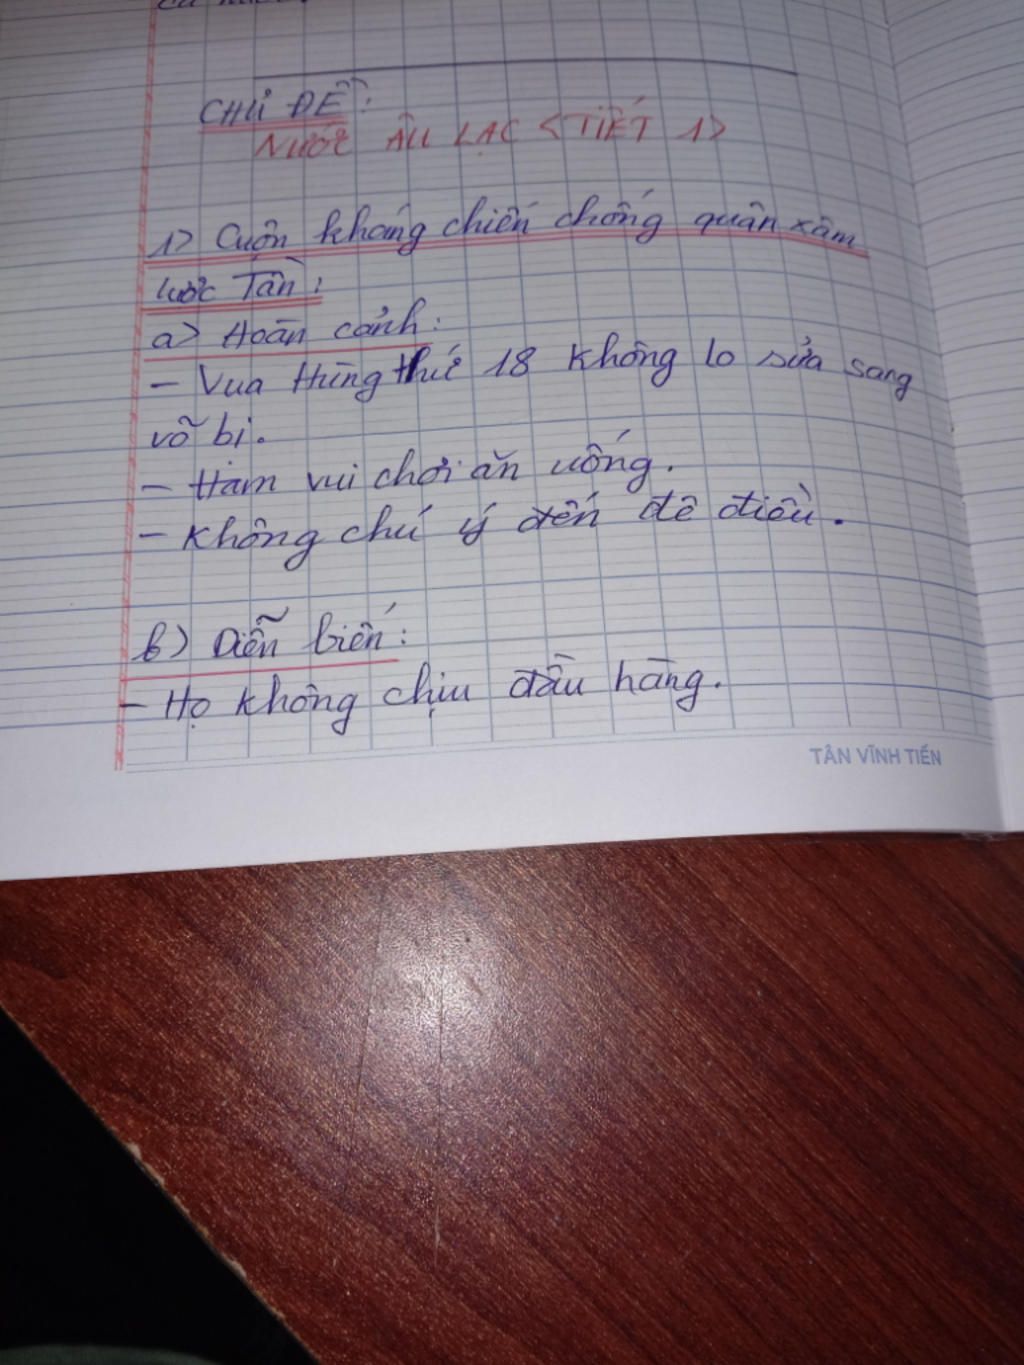 CHỦ ĐỀ:
NƯỚC ÂU LẠC <TIẾT 1>
1> Cuộn kháng chiến chống quân xâm
lược Tần:
a> Hoàn cảnh:
- Vua Hùng thứ 18 không lo sửa sang
võ bị.
- Ham vui chơi ăn uống.
- Không chú ý đến đê điều.
b) Diễn biến:
- Họ không chịu đầu hàng.
TÂN VĨNH TIẾN